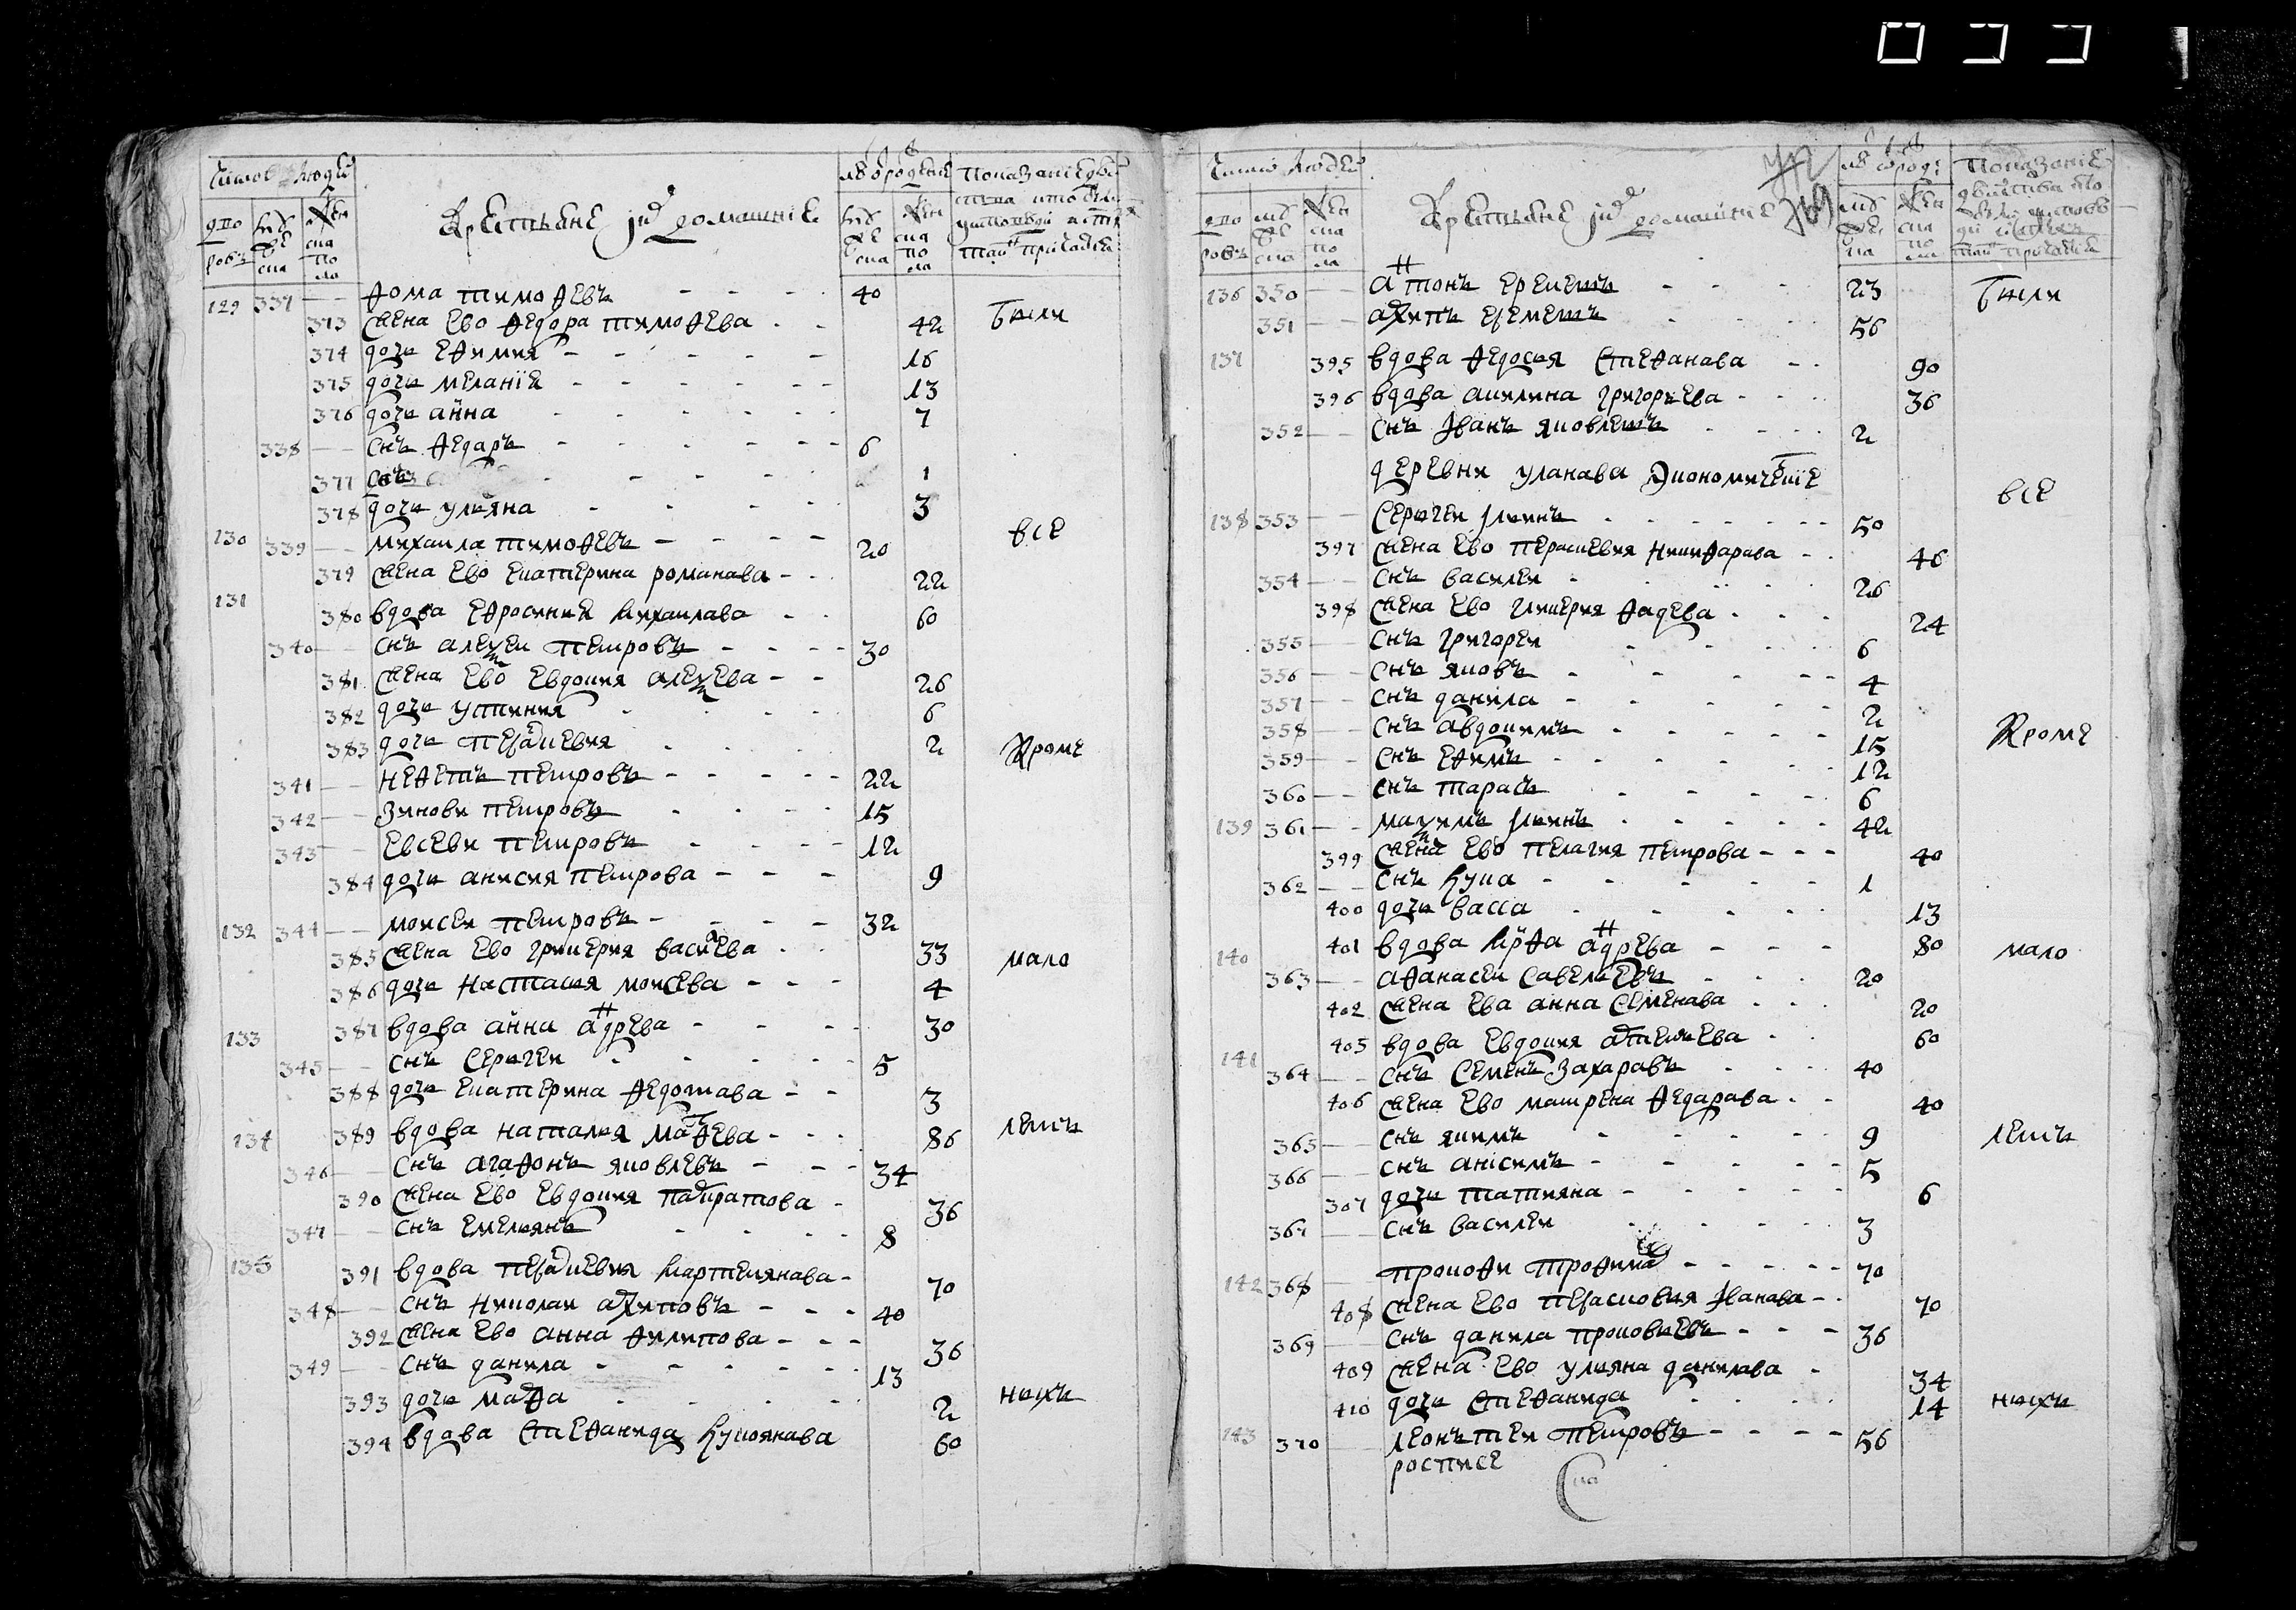 Число людей
Крестьяне и их домашние
дво ровъ
муж ска
жен ска по ла
129 337 — Фома Тимофевъ - - - 40
373 жена ево Федора Тимофева - - 42 Были
374 дочь Ефимия - - - 16
375 дочь Меланіа - - - 13
376 дочь анна - - - 7
338 — снъ Федаръ - - - 6
377 - - - 1
378 дочь ульяна - - - 3
130 339 — михаила тимофевъ - - - 20 всѣ
379 жена ево Екатерина романава - - 22
131 380 вдова Ефросиния Михаилава - - 60
340 — снъ алексеи Петровъ - - - 30
381 жена Ево Евдокия алексева - - 26
382 дочь устиния - - - 6
383 дочь Перасковия - - - 2 Кроме
341 — Нефетъ петровъ - - - 22
342 — Зинови петровъ - - - 15
343 — Евсеви петровъ - - - 12
384 дочь анисия петрова - - - 9
132 344 — моисеи петровъ - - - 32
385 жена ево гликерия васильева - - 33 мало
386 дочь Настасия моисева - - - 4
133 387 вдова анна андрева - - - 30
345 — снъ Сергеи - - - 5
388 дочь Екатерина Федотава - - 3
134 389 вдова наталия матфева - - - 86 летъ
346 — снъ агафонъ яковлевъ - - - 34
390 жена Ево Евдокия панкратова - 36
347 — снъ Емельянъ - - - 8
135 391 вдова Перасковия Мартемянава - 70
348 — снъ николаи архиповъ - - - 40
392 жена Ево анна Филипова - - - 36
349 — снъ данила - - - 13
393 дочь марфа - - - 2 нихъ
394 вдова Стефанида Лукоянава 60
Число людей
Крестьяне и их домашние
136 350 — антонъ Еремеевъ - - - 23 Были
351 — архипъ Еремеевъ 56
137 395 вдова Федосия Стефанава - - 90
396 вдова акилина григорьева - - - 36
352 — снъ Иванъ яковлевъ - - - 2
деревни уланава Экономическіе
всѣ
138 353 — Сергеи Ильинъ - - - 50
397 жена Ево Перасковия Никифарава - - 46
354 — снъ василеи - - - 26
398 жена Ево гликерия Фадева - - - 24
355 — снъ григореи - - - 6
356 — снъ яковъ - - - 4
357 — снъ данила - - - 2
358 — снъ авдокимъ - - - 15 Кроме
359 — снъ Ефимъ - - - 12
360 — снъ тарасъ - - - 6
139 361 — максимъ Ильинъ - - - 42
399 жена Ево пелагия петрова - - - 40
362 — снъ Лука - - - 1
400 дочь васса - - - 13
140 401 вдова Марфа андрева - - - 80 мало
363 — афанасеи савельевъ - - - 20
402 жена Ева анна Семенава - - - 20
141 405 вдова Евдокия артемьева - - 60
364 — снъ Семенъ Захаравъ - - - 40
406 жена Ево матрена Федарава - - 40
365 — снъ якимъ - - - 9 летъ
366 — снъ анісимъ - - - 5
307 дочь татияна - - - 6
367 — снъ василеи - - - 3
142 368 — прокофи трофима - - - 70
408 жена Ево Перасковия Иванава - - 70
369 — снъ данила проковьевъ - - - 36
409 жена Ево ульяна данилава - 34
410 дочь Стефанида - - - 14 нихъ
143 370 — леонътеи петровъ - - - 56
росписе